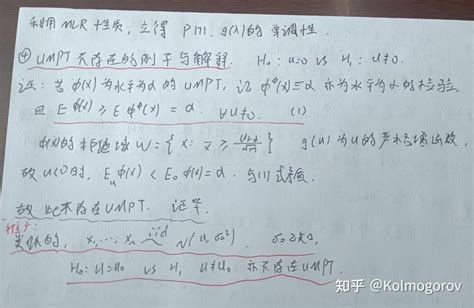 利用 MLR 性质，立得 P171. g(λ)的单调性.
④ UMPT不存在的例子与解释. H₀: u=0 vs H₁: u≠0.
证: 若 φ(x) 为水平为α的UMPT, 记 φ*(x)≡α 亦为水平为α的检验
且 E φ(x) ≥ E φ*(x) = α. ∀u≠0. (1)
φ(x)的拒绝域 W={x: x̄ ≥ } g(u)为u的严格增函数,
故 u<0时, E_u φ(x) < E₀ φ(x)=α. 与(1)式矛盾.
故 此不存在UMPT. 证毕.
推广:
类似的, x₁, ⋯, xₙ iid ~ N(u, σ₀²). σ₀²已知,
H₀: u=u₀ vs H₁ u≠u₀ 亦不存在UMPT.
知乎 @Kolmogorov